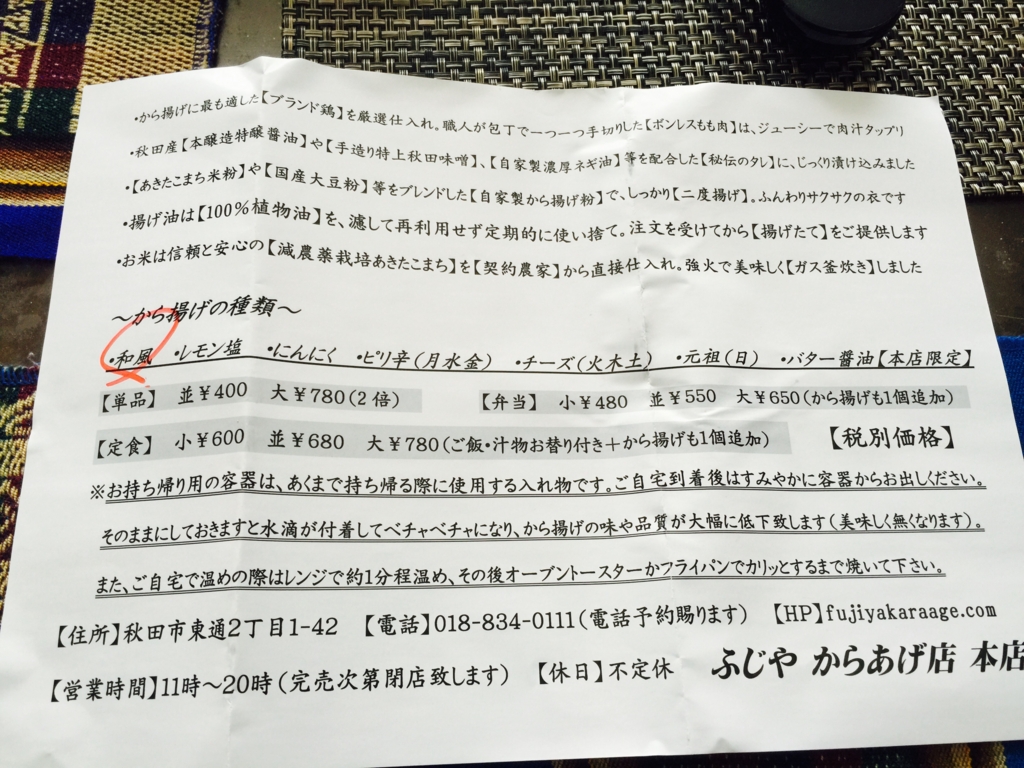 ・から揚げに最も適した【ブランド鶏】を厳選仕入れ。職人が包丁で一つ一つ手切りした【ボンレスもも肉】は、ジューシーで肉汁タップリ
・秋田産【本醸造特醸醤油】や【手造り特上秋田味噌】、【自家製濃厚ネギ油】等を配合した【秘伝のタレ】に、じっくり漬け込みました
・【あきたこまち米粉】や【国産大豆粉】等をブレンドした【自家製から揚げ粉】で、しっかり【二度揚げ】。ふんわりサクサクの衣です
・揚げ油は【100%植物油】を、濾して再利用せず定期的に使い捨て。注文を受けてから【揚げたて】をご提供します
・お米は信頼と安心の【減農薬栽培あきたこまち】を【契約農家】から直接仕入れ。強火で美味しく【ガス釜炊き】しました
～から揚げの種類～
・和風 ・レモン塩 ・にんにく ・ピリ辛(月水金) ・チーズ(火木土) ・元祖(日) ・バター醤油【本店限定】
【単品】 並¥400 大¥780(2倍) 【弁当】 小¥480 並¥550 大¥650(から揚げも1個追加)
【定食】 小¥600 並¥680 大¥780(ご飯・汁物お替り付き+から揚げも1個追加) 【税別価格】
※お持ち帰り用の容器は、あくまで持ち帰る際に使用する入れ物です。ご自宅到着後はすみやかに容器からお出しください。
そのままにしておきますと水滴が付着してベチャベチャになり、から揚げの味や品質が大幅に低下致します(美味しく無くなります)。
また、ご自宅で温めの際はレンジで約1分程温め、その後オーブントースターかフライパンでカリッとするまで焼いて下さい。
【住所】秋田市東通2丁目1-42 【電話】018-834-0111(電話予約賜ります) 【HP】fujiyakaraage.com
【営業時間】11時～20時(完売次第閉店致します) 【休日】不定休 ふじや からあげ店 本店